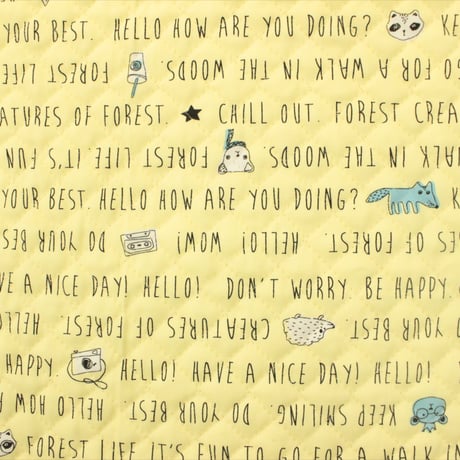 YOUR BEST. HELLO HOW ARE YOU DOING? KE
GO FOR A WALK IN THE WOODS. FOREST LIFE
ATURES OF FOREST. CHILL OUT. FOREST CREA
WALK IN THE WOODS. FOREST LIFE. IT'S FUN
YOUR BEST. HELLO HOW ARE YOU DOING? K
ES OF FOREST. HELLO! WOW! DO YOUR BES
VE A NICE DAY! HELLO! DON'T WORRY. BE HAPPY.
O YOUR BEST. CREATURES OF FOREST. HELLO
HAPPY. HELLO! HAVE A NICE DAY! HELLO!
KEEP SMILING. DO YOUR BEST. HELLO HOW A
FOREST LIFE IT'S FUN TO GO FOR A WALK IN